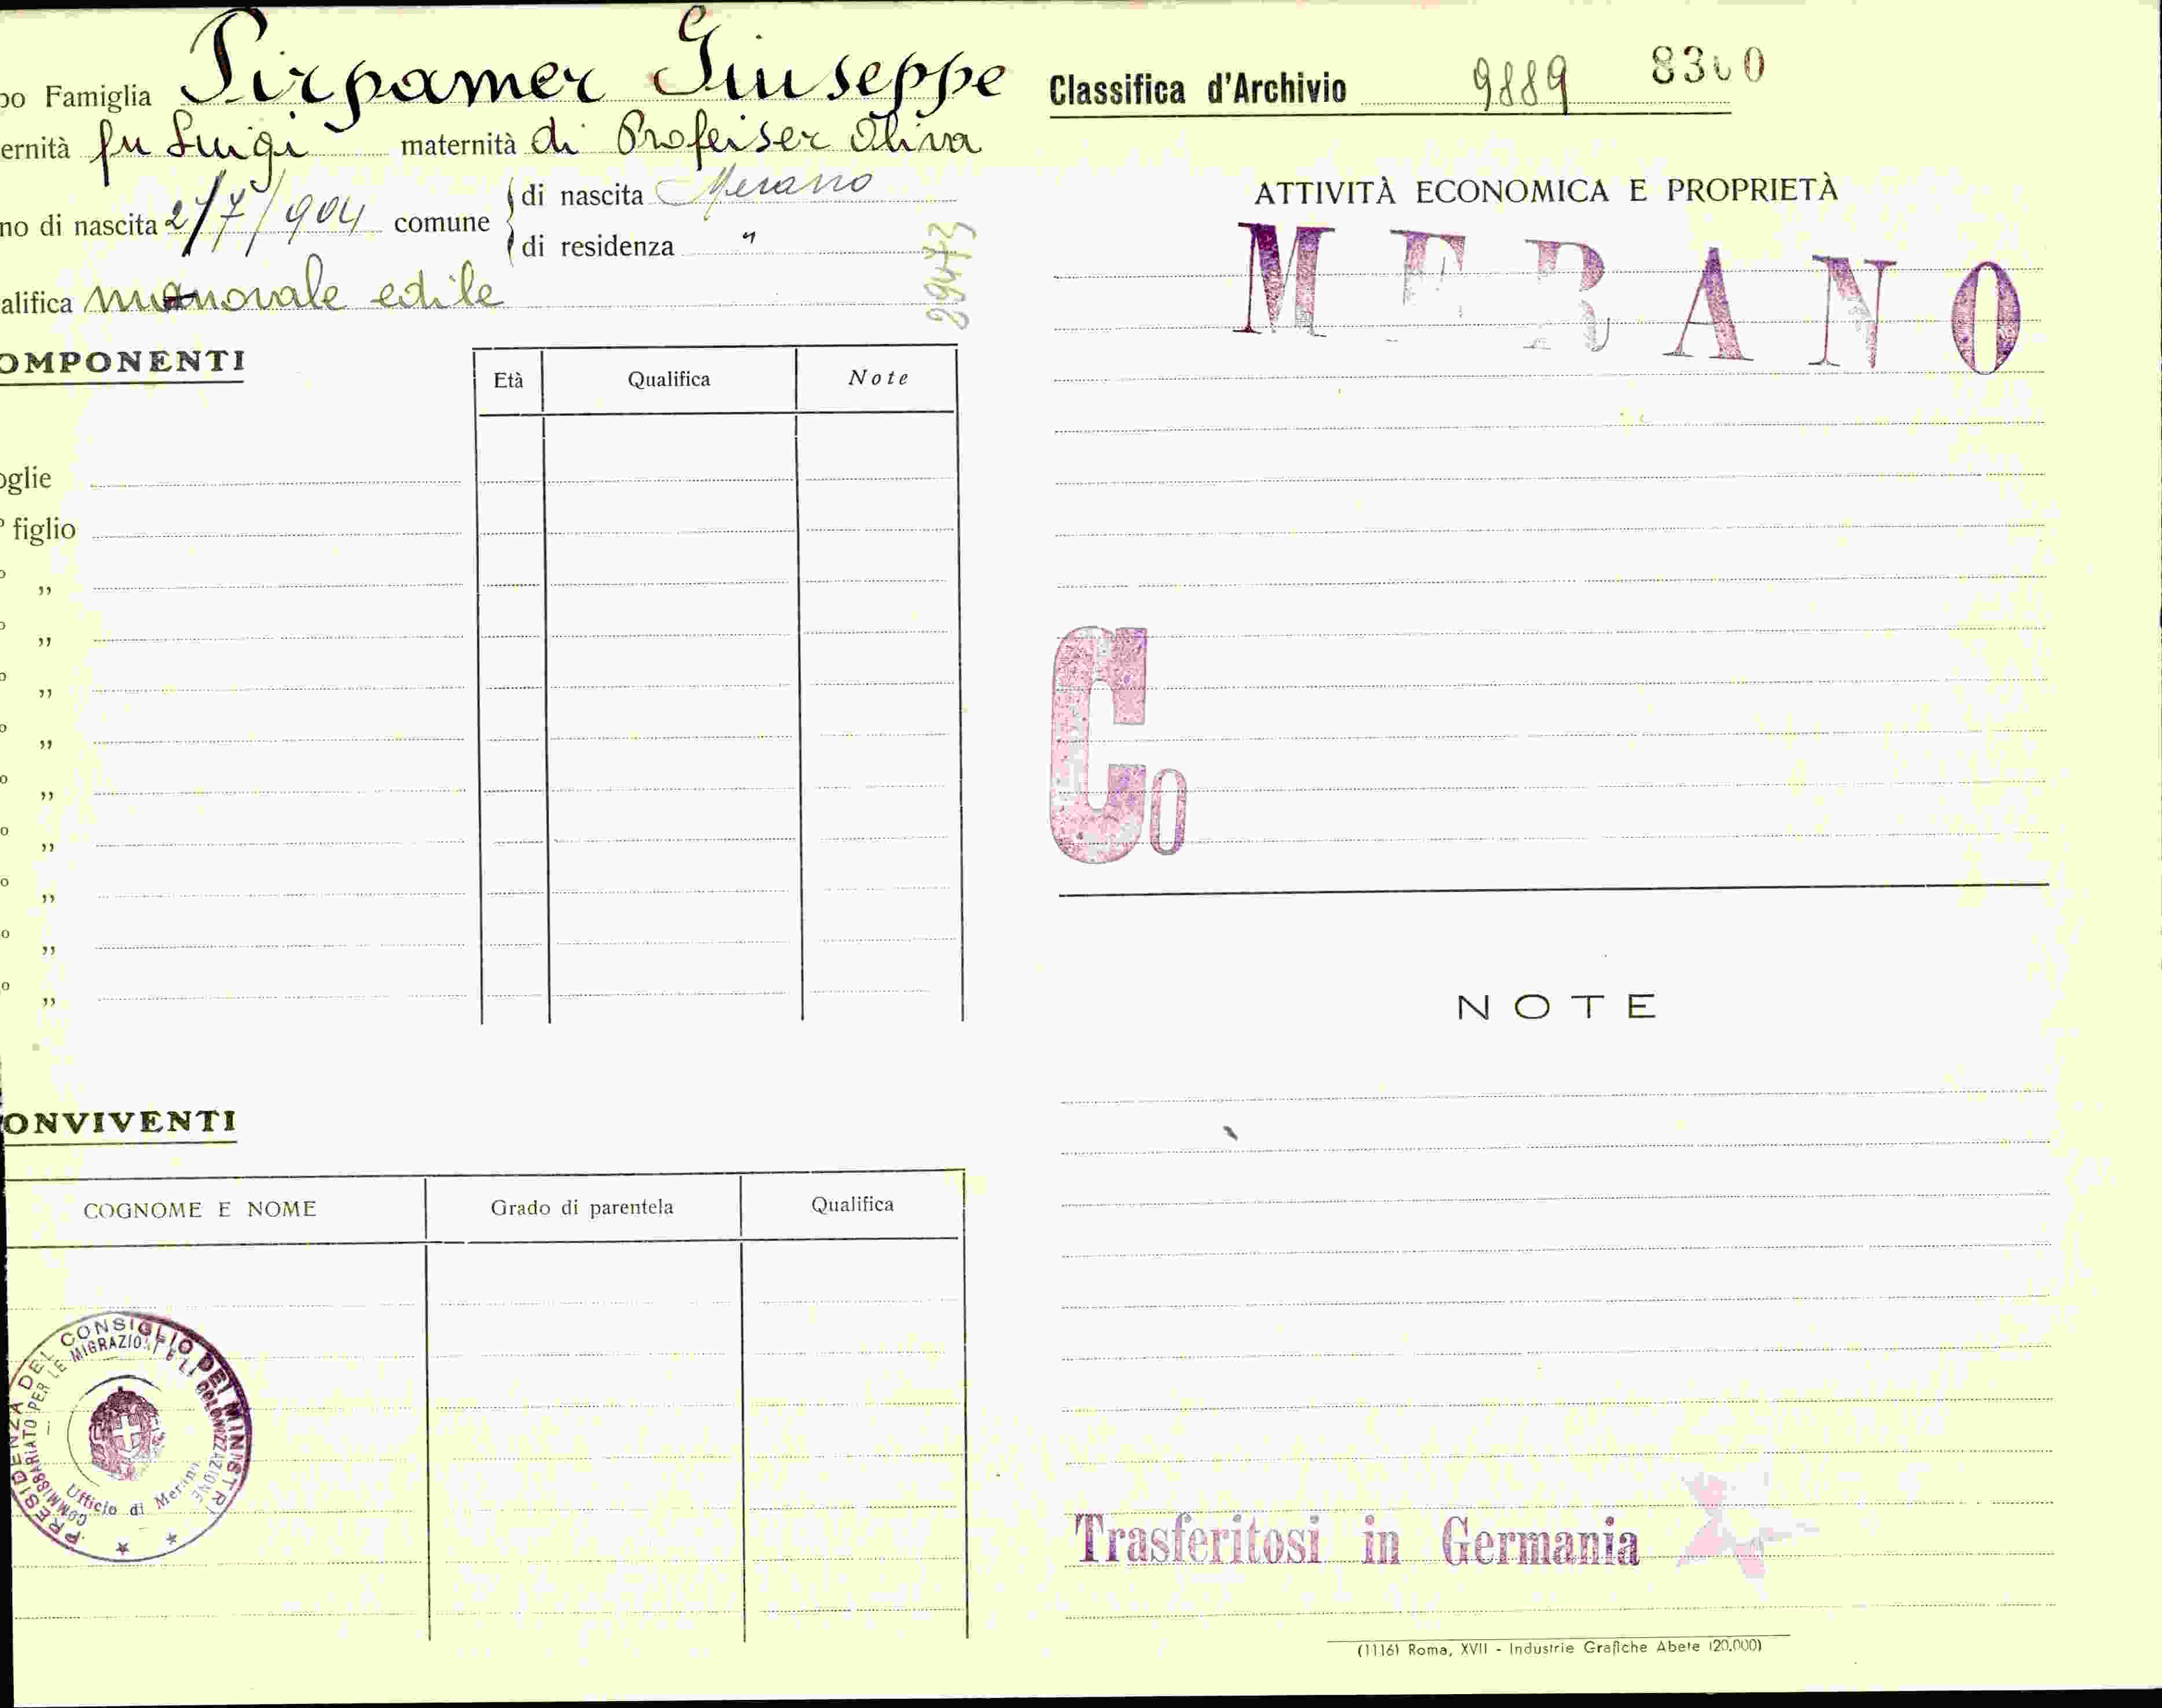 po Famiglia Pirpamer Giuseppe
ernità fu Luigi maternità di Profeiser Oliva
no di nascita 2/7/904 comune di nascita Merano
di residenza "
alifica manovale edile
29473
OMPONENTI
Età Qualifica Note
oglie
° figlio
° „
° „
° „
° „
° „
° „
° „
° „
° „
ONVIVENTI
COGNOME E NOME Grado di parentela Qualifica
PRESIDENZA DEL CONSIGLIO DEI MINISTRI
COMMISSARIATO PER LE MIGRAZIONI E LA COLONIZZAZIONE
Ufficio di Merano
Classifica d'Archivio 9889 8300
ATTIVITÀ ECONOMICA E PROPRIETÀ
MERANO
Co
NOTE
Trasferitosi in Germania
(1116) Roma, XVII - Industrie Grafiche Abete (20.000)